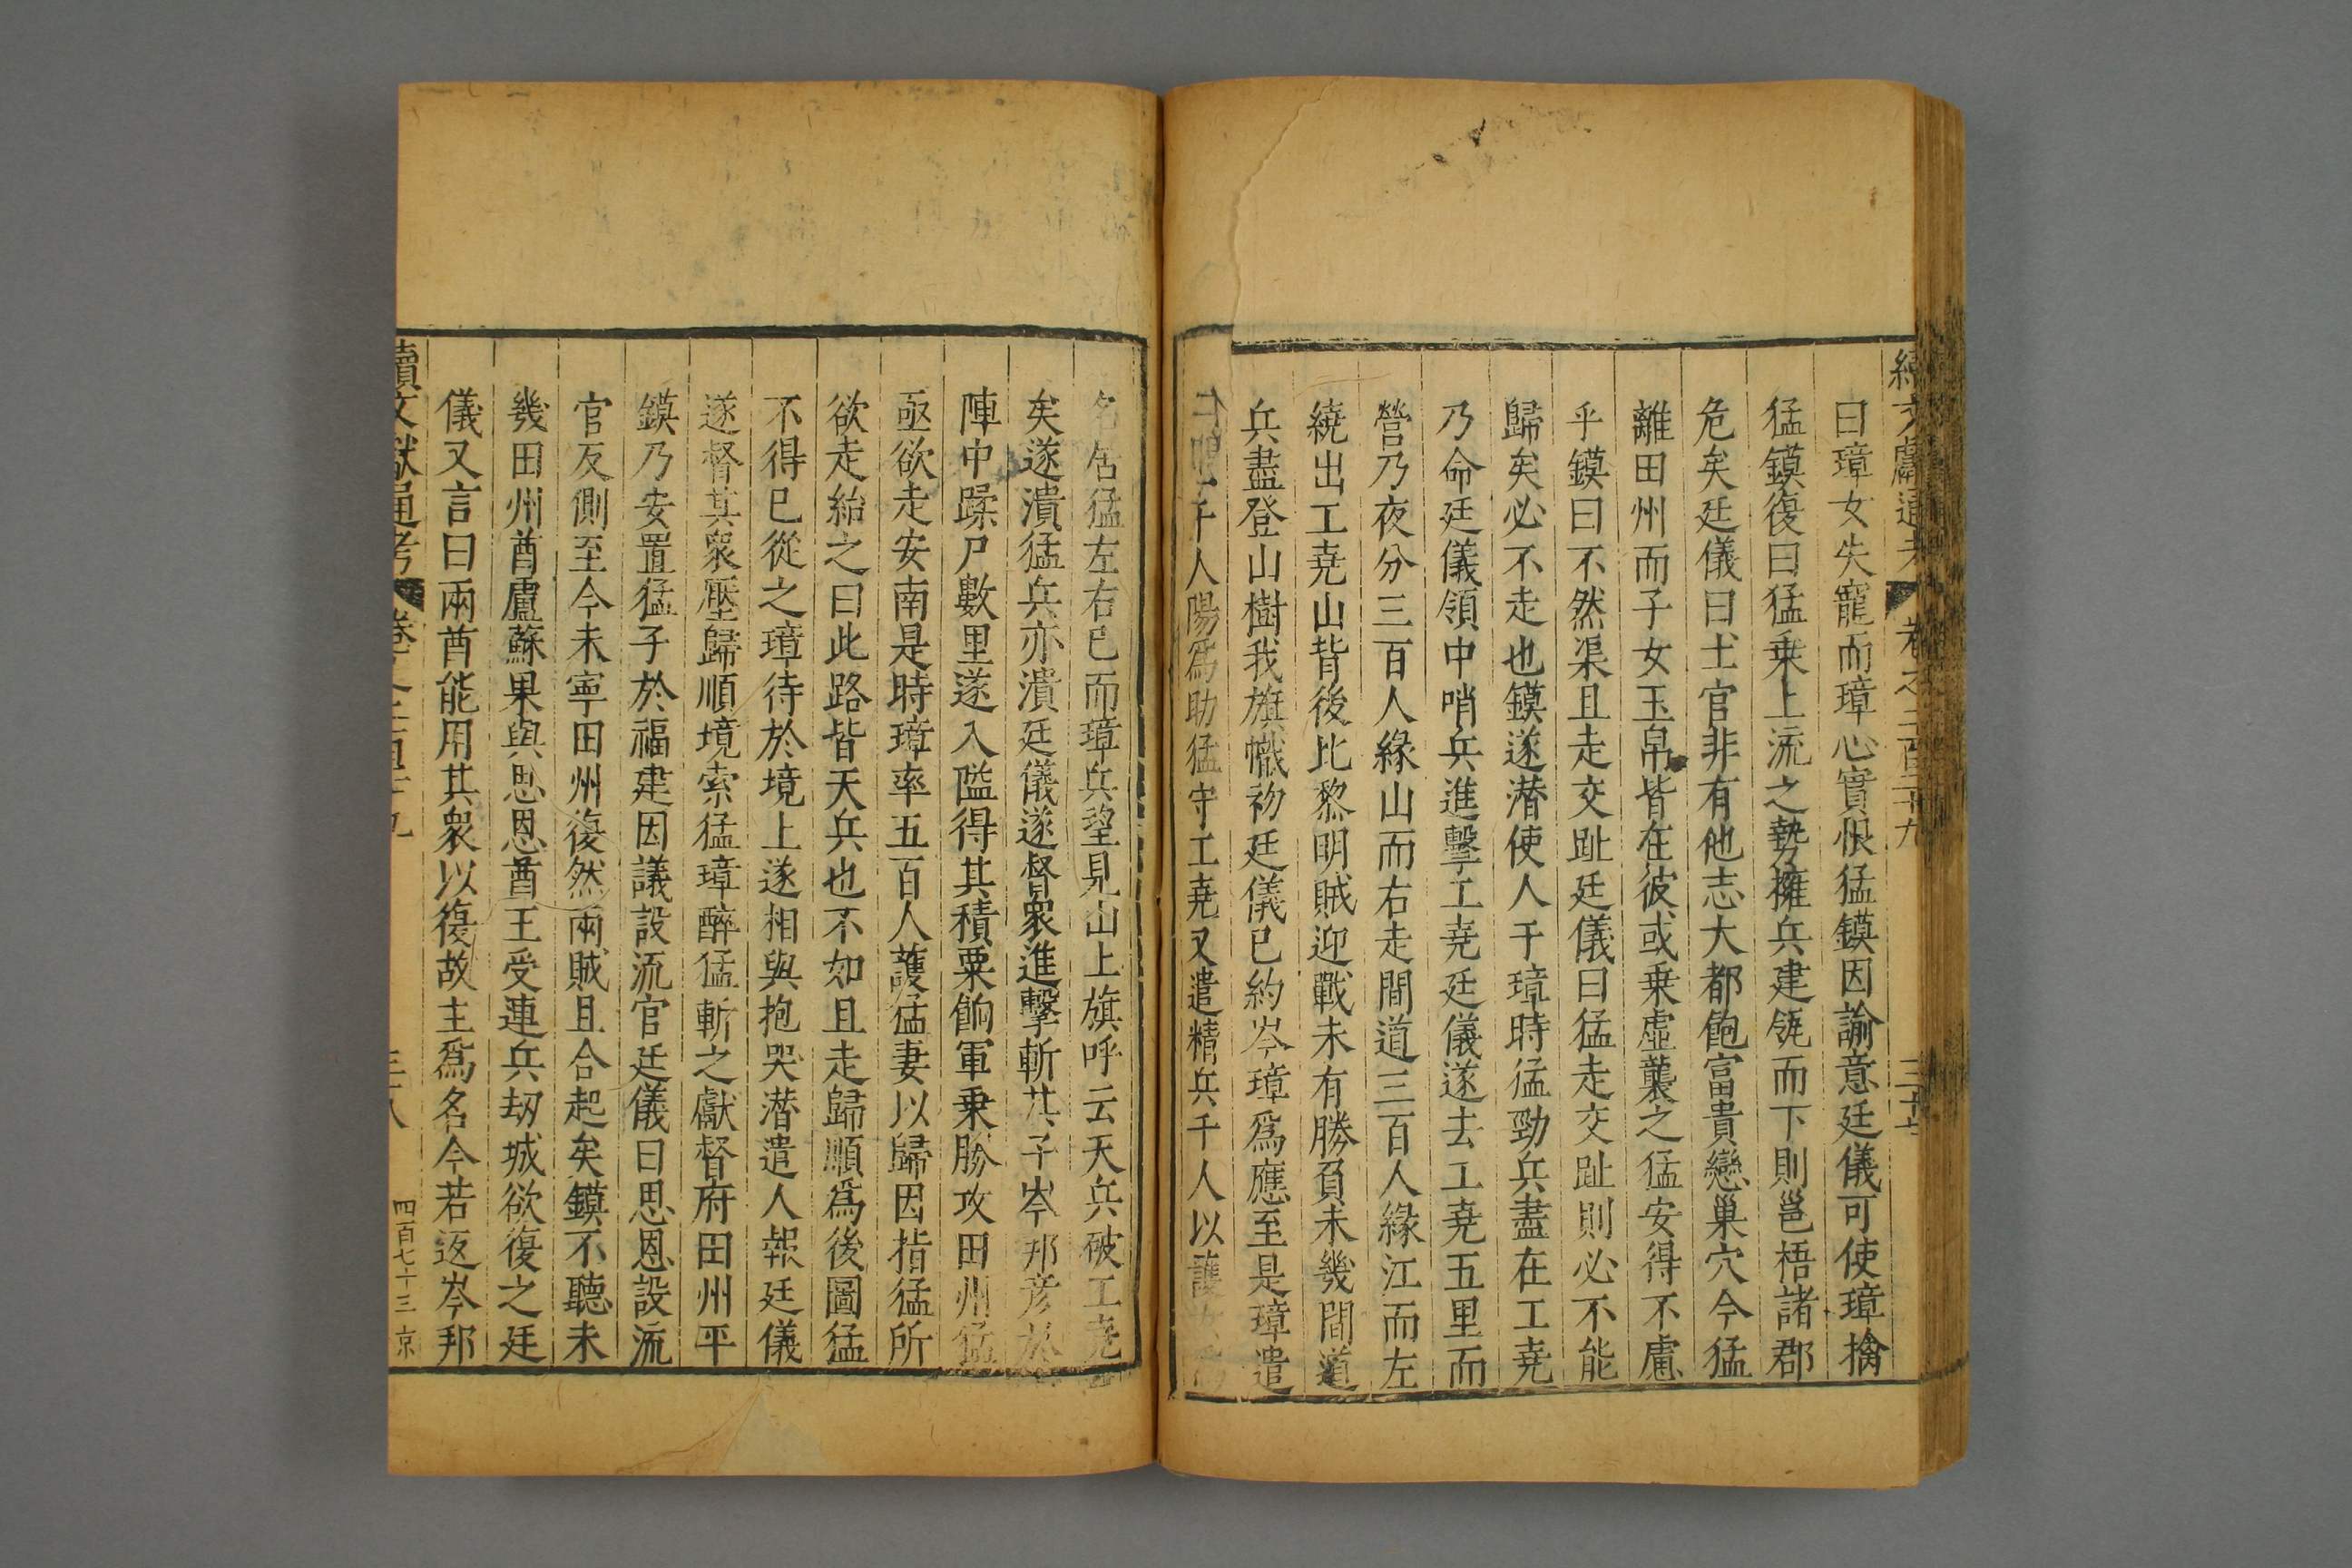 續文獻通考 卷之二百三十九 三十七
曰璋女失寵而璋心實恨猛鏌因諭意廷儀可使璋擒
猛鏌復曰猛乗上流之勢擁兵建瓴而下則邕梧諸郡
危矣廷儀曰土官非有他志大都飽富貴戀巢穴今猛
離田州而子女玉帛皆在彼或乗虛襲之猛安得不慮
乎鏌曰不然渠且走交趾廷儀曰猛走交趾則必不能
歸矣必不走也鏌遂潜使人于璋時猛勁兵盡在工堯
乃命廷儀領中哨兵進擊工堯廷儀遂去工堯五里而
營乃夜分三百人緣山而右走間道三百人緣江而左
繞出工堯山背後比黎明賊迎戰未有勝負未幾間道
兵盡登山樹我旗幟初廷儀已約岑璋爲應至是璋遣
千人陽爲助猛守工堯又遣精兵千人以護
猛左右已而璋兵望見山上旗呼云天兵破工堯
矣遂潰猛兵亦潰廷儀遂督衆進擊斬其子岑邦彦於
陣中蹂尸數里遂入隘得其積粟餉軍乗勝攻田州猛
亟欲走安南是時璋率五百人護猛妻以歸因指猛所
欲走紿之曰此路皆天兵也不如且走歸順爲後圖猛
不得已從之璋待於境上遂相與抱哭潜遣人報廷儀
遂督其衆壓歸順境索猛璋醉猛斬之獻督府田州平
鏌乃安置猛子於福建因議設流官廷儀曰思恩設流
官反側至今未寧田州復然兩賊且合起矣鏌不聽未
幾田州酋盧蘇果與思恩酋王受連兵刼城欲復之廷
儀又言曰兩酋能用其衆以復故主爲名今若返岑邦
續文獻通考 卷之二百三十九 三十八 四百七十三 京